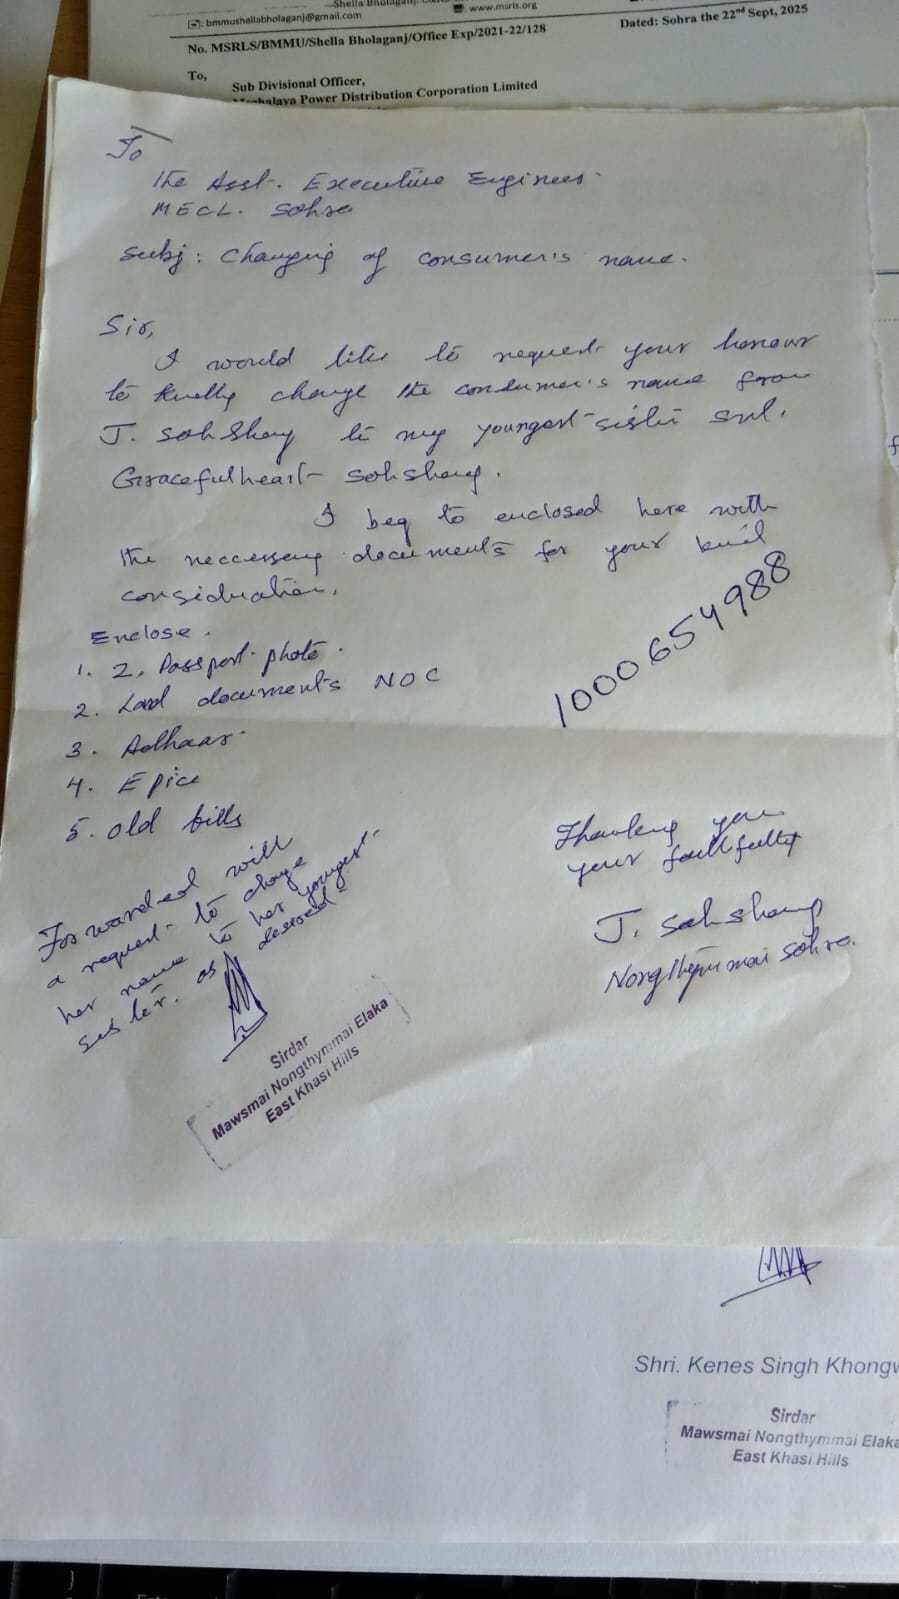 Shella Bholaganj
: bmmushellabholaganj@gmail.com
: www.msrls.org
No. MSRLS/BMMU/Shella Bholaganj/Office Exp/2021-22/128
Dated: Sohra the 22nd Sept, 2025
To,
Sub Divisional Officer,
Meghalaya Power Distribution Corporation Limited
To
The Asst. Executive Engineer
MECL. Sohra
Subj: Changing of consumer's name.
Sir,
I would like to request your honour
to kindly change the consumer's name from
J. Sohshang to my youngest sister Smt.
Gracefulheart Sohshang.
I beg to enclosed here with
the neccessary documents for your kind
consideration.
Enclose.
1. 2, Passport photo.
2. Land documents NOC
3. Adhaar
4. Epice
5. old bills
1000654988
Thanking you
your faithfully
J. Sohshang
Nongthymmai Sohra.
Forwarded with
a request to change
her name to her youngest
sister. as desired
Sirdar
Mawsmai Nongthymmai Elaka
East Khasi Hills
Shri. Kenes Singh Khongw
Sirdar
Mawsmai Nongthymmai Elaka
East Khasi Hills